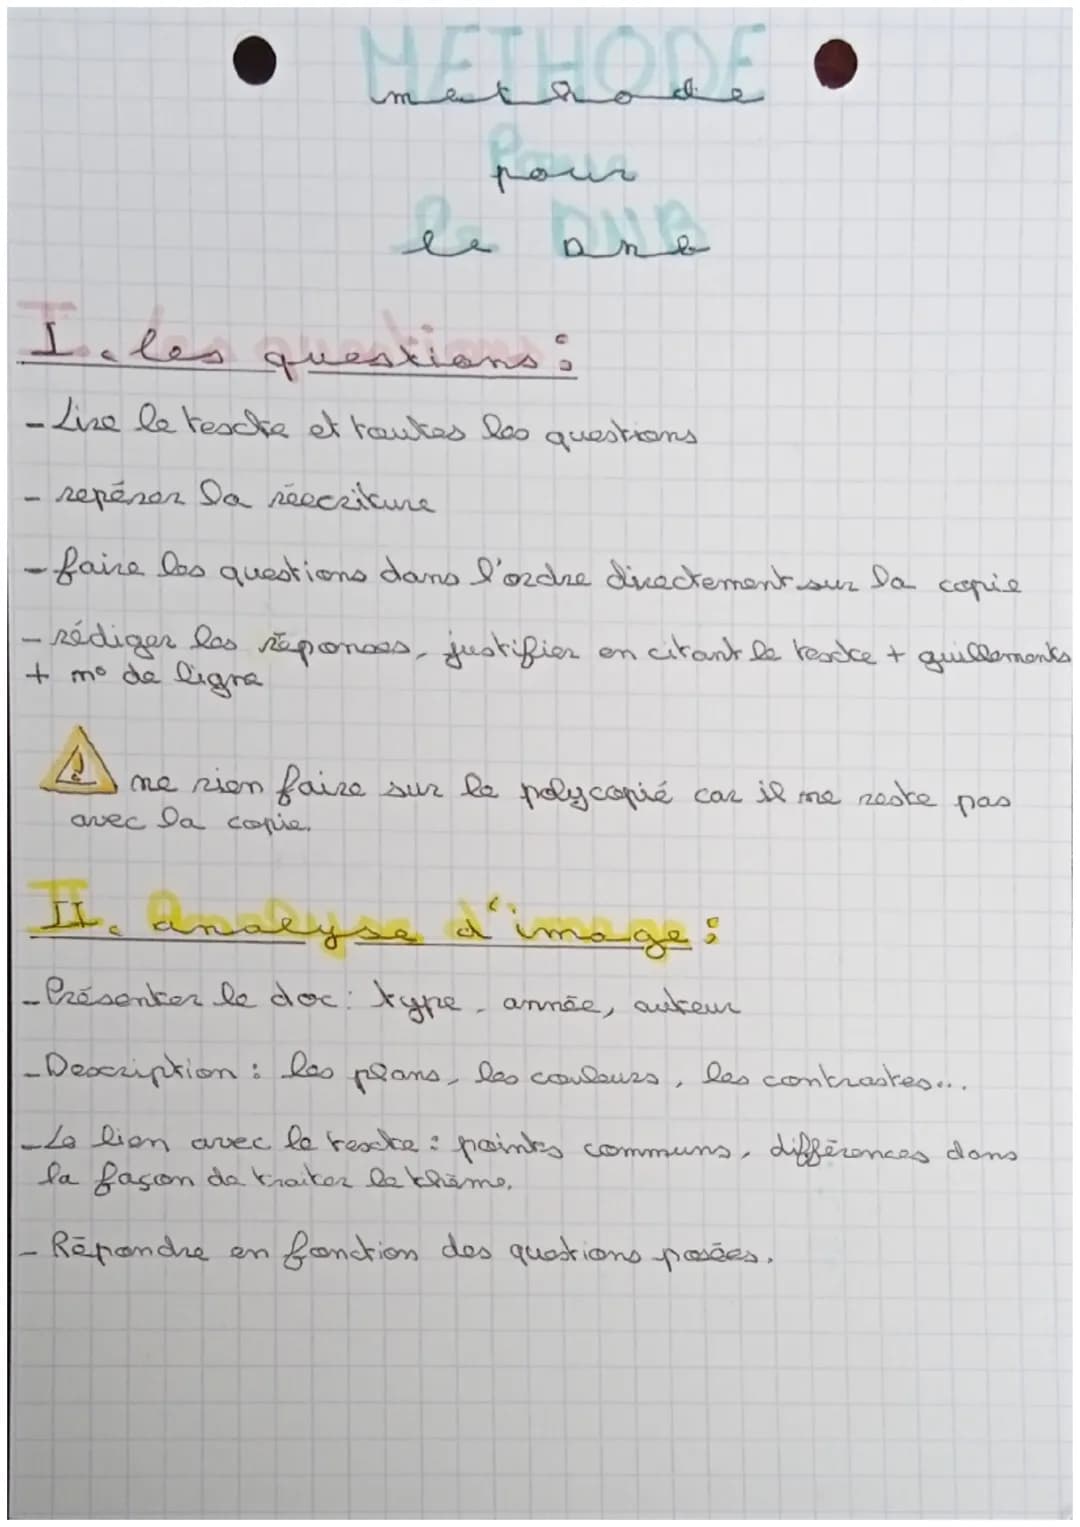 METHODE
methode
Pour
pour
le DNB
le DNB
I. les questions :
- Lire le texte et toutes les questions
- repérer la réecriture
- faire les questions dans l'ordre directement sur la copie
- rédiger les réponses, justifier en citant le texte + guillements
+ n° de ligne
! ne rien faire sur le polycopié car il ne reste pas
avec la copie.
II. analyse d'image :
- Présenter le doc : type, année, auteur
- Description : les plans, les couleurs, les contrastes...
- Le lien avec le texte : points communs, différences dans
la façon de traiter le thème.
- Répondre en fonction des questions posées.